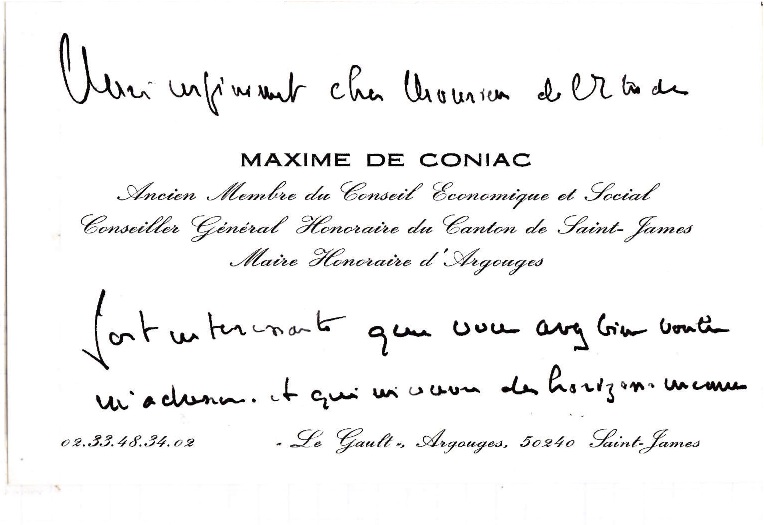 Merci infiniment cher Monsieur de l'Etude
MAXIME DE CONIAC
Ancien Membre du Conseil Economique et Social
Conseiller Général Honoraire du Canton de Saint-James
Maire Honoraire d'Argouges
fort interessante que vous avez bien voulu
m'adresser. et qui m'ouvre des horizons inconnus
02.33.48.34.02 « Le Gault », Argouges, 50240 Saint-James